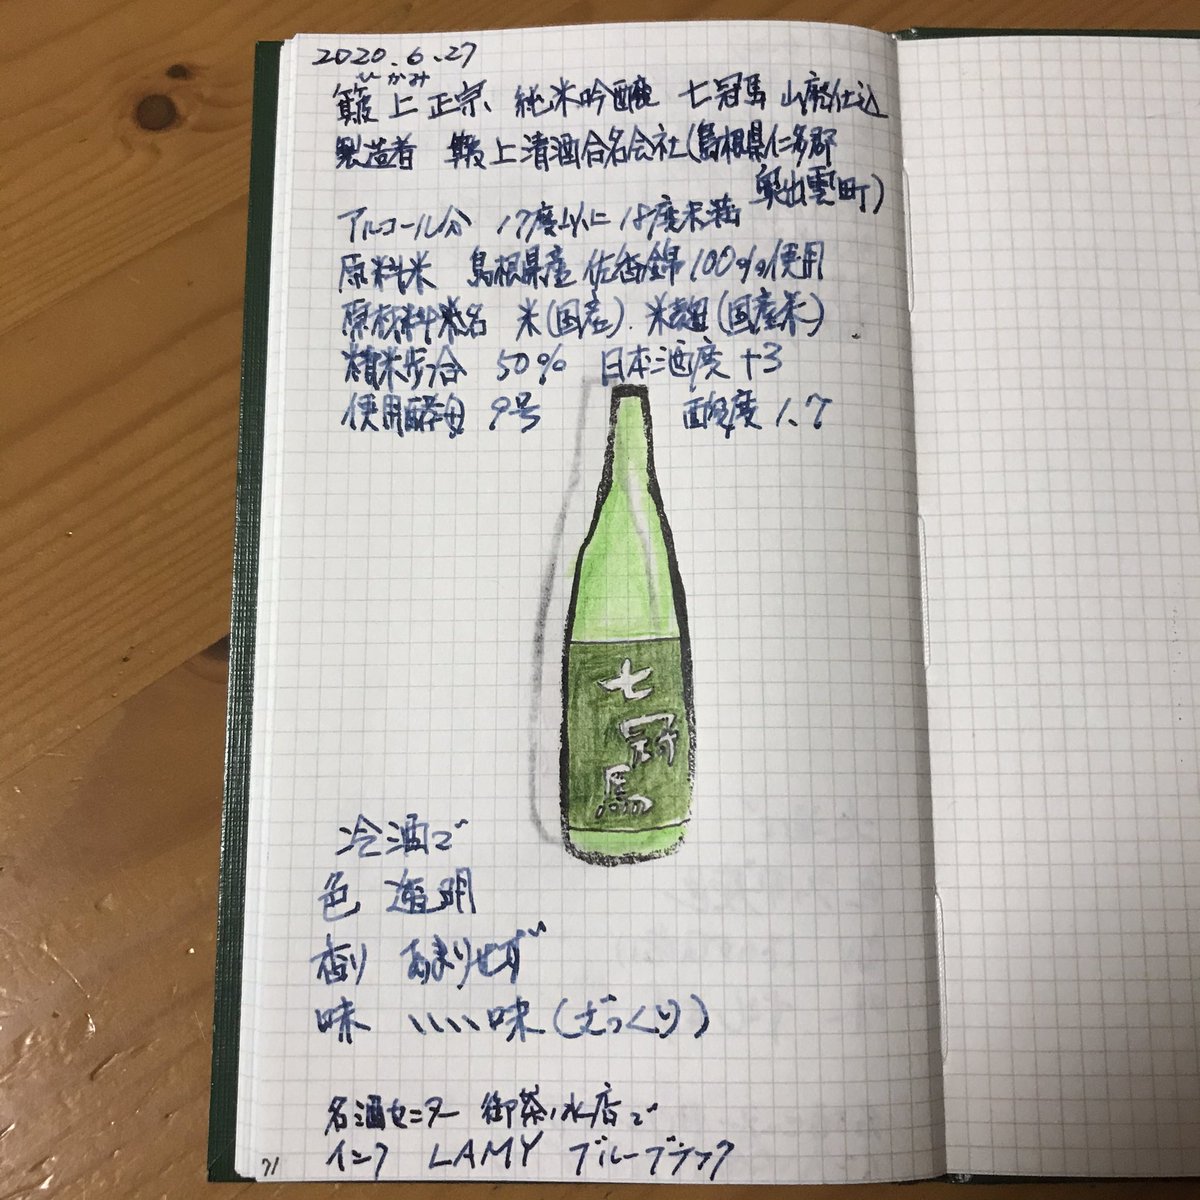 2020.6.27
ひかみ
簸上正宗 純米吟醸 七冠馬 山廃仕込
製造者 簸上清酒合名会社(島根県仁多郡
奥出雲町)
アルコール分 17度以上18度未満
原料米 島根県産 佐香錦100%使用
原材料米名 米(国産). 米麹(国産米)
精米歩合 50% 日本酒度 +3
使用酵母 9号 酸度 1.7
七冠馬
冷酒で
色 透明
香り あまりせず
味 いい味(ざっくり)
名酒センター 御茶ノ水店で
インク LAMY ブルーブラック
71